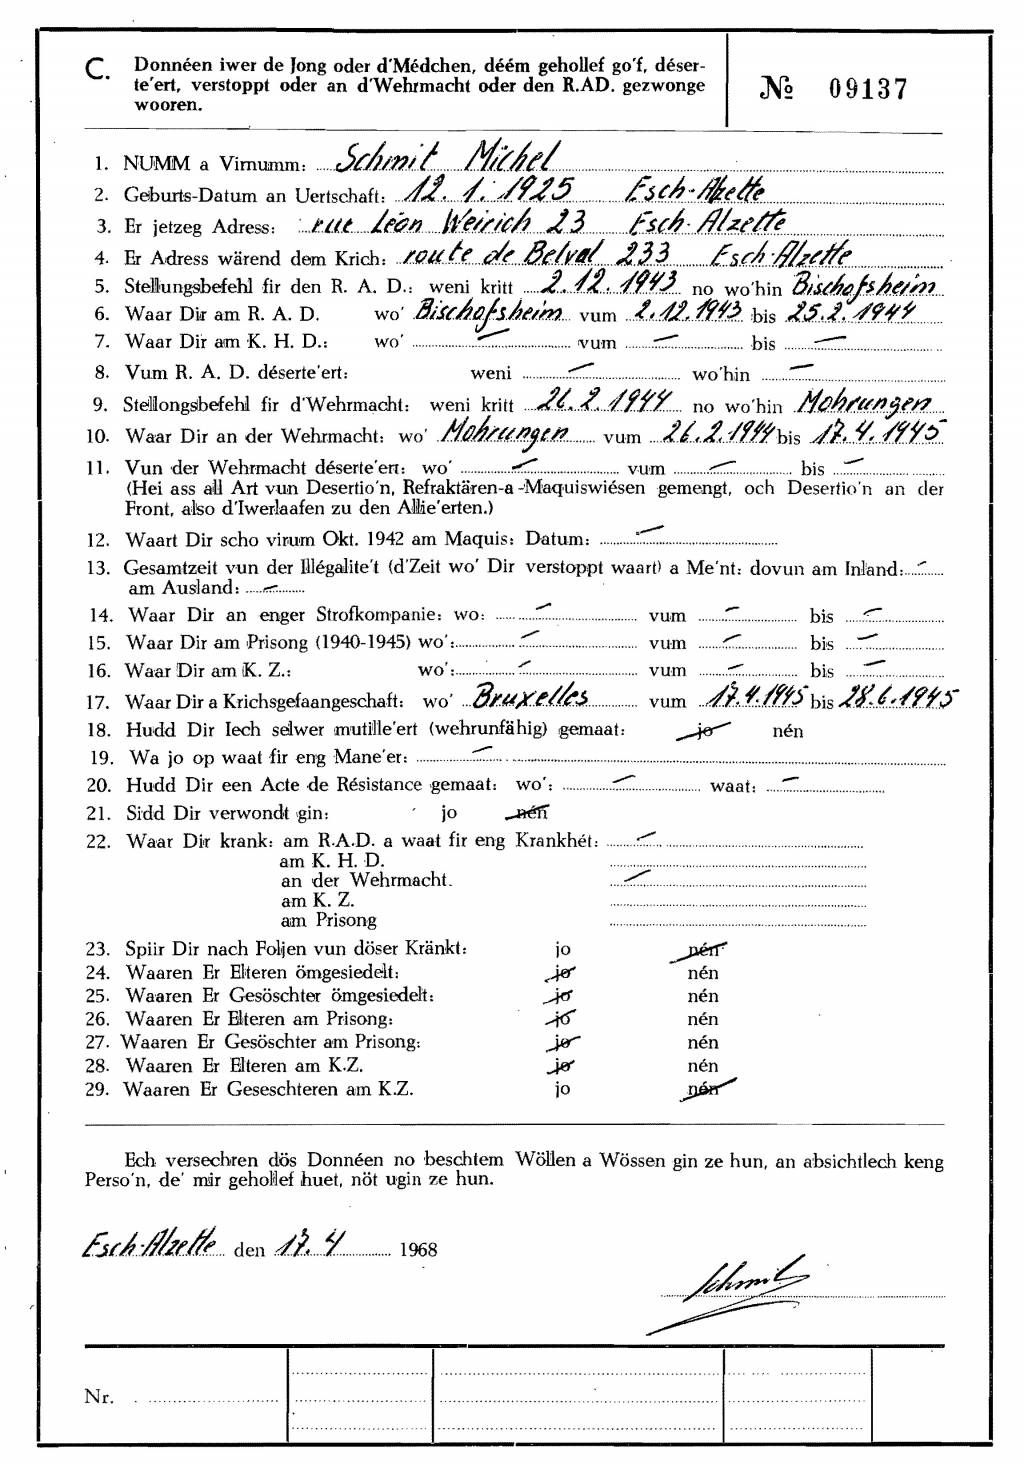 C. Donnéen iwer de Jong oder d'Médchen, déém gehollef go'f, déser-
te'ert, verstoppt oder an d'Wehrmacht oder den R.AD. gezwonge
wooren.
№ 09137
1. NUMM a Virnumm: Schmit Michel
2. Geburts-Datum an Uertschaft: 12.1.1925 Esch-Alzette
3. Er jetzeg Adress: rue Léon Weirich 23 Esch-Alzette
4. Er Adress wärend dem Krich: route de Belval 233 Esch-Alzette
5. Stellungsbefehl fir den R. A. D.: weni kritt 2.12.1943 no wo'hin Bischofsheim
6. Waar Dir am R. A. D. wo' Bischofsheim vum 2.12.1943 bis 25.2.1944
7. Waar Dir am K. H. D.: wo' — vum — bis —
8. Vum R. A. D. déserte'ert: weni — wo'hin —
9. Stellongsbefehl fir d'Wehrmacht: weni kritt 26.2.1944 no wo'hin Mohrungen
10. Waar Dir an der Wehrmacht: wo' Mohrungen vum 26.2.1944 bis 17.4.1945
11. Vun der Wehrmacht déserte'ert: wo' — vum — bis —
(Hei ass all Art vun Desertio'n, Refraktären-a-Maquiswiésen gemengt, och Desertio'n an der
Front, also d'Iwerlaafen zu den Allie'erten.)
12. Waart Dir scho virum Okt. 1942 am Maquis: Datum: —
13. Gesamtzeit vun der Illégalite't (d'Zeit wo' Dir verstoppt waart) a Me'nt: dovun am Inland: —
am Ausland: —
14. Waar Dir an enger Strofkompanie: wo: — vum — bis —
15. Waar Dir am Prisong (1940-1945) wo': — vum — bis —
16. Waar Dir am K. Z.: wo': — vum — bis —
17. Waar Dir a Krichsgefaangeschaft: wo' Bruxelles vum 17.4.1945 bis 28.6.1945
18. Hudd Dir Iech selwer mutille'ert (wehrunfähig) gemaat: jo nén
19. Wa jo op waat fir eng Mane'er: —
20. Hudd Dir een Acte de Résistance gemaat: wo': — waat: —
21. Sidd Dir verwondt gin: jo nén
22. Waar Dir krank: am R.A.D. a waat fir eng Krankhét: —
am K. H. D.
an der Wehrmacht. —
am K. Z.
am Prisong
23. Spiir Dir nach Foljen vun döser Kränkt: jo nén
24. Waaren Er Elteren ömgesiedelt: jo nén
25. Waaren Er Gesöschter ömgesiedelt: jo nén
26. Waaren Er Elteren am Prisong: jo nén
27. Waaren Er Gesöschter am Prisong: jo nén
28. Waaren Er Elteren am K.Z. jo nén
29. Waaren Er Geseschteren am K.Z. jo nén
Ech versechren dös Donnéen no beschtem Wöllen a Wössen gin ze hun, an absichtlech keng
Perso'n, de' mir gehollef huet, nöt ugin ze hun.
Esch-Alzette den 17.4 1968
Schmit
Nr.